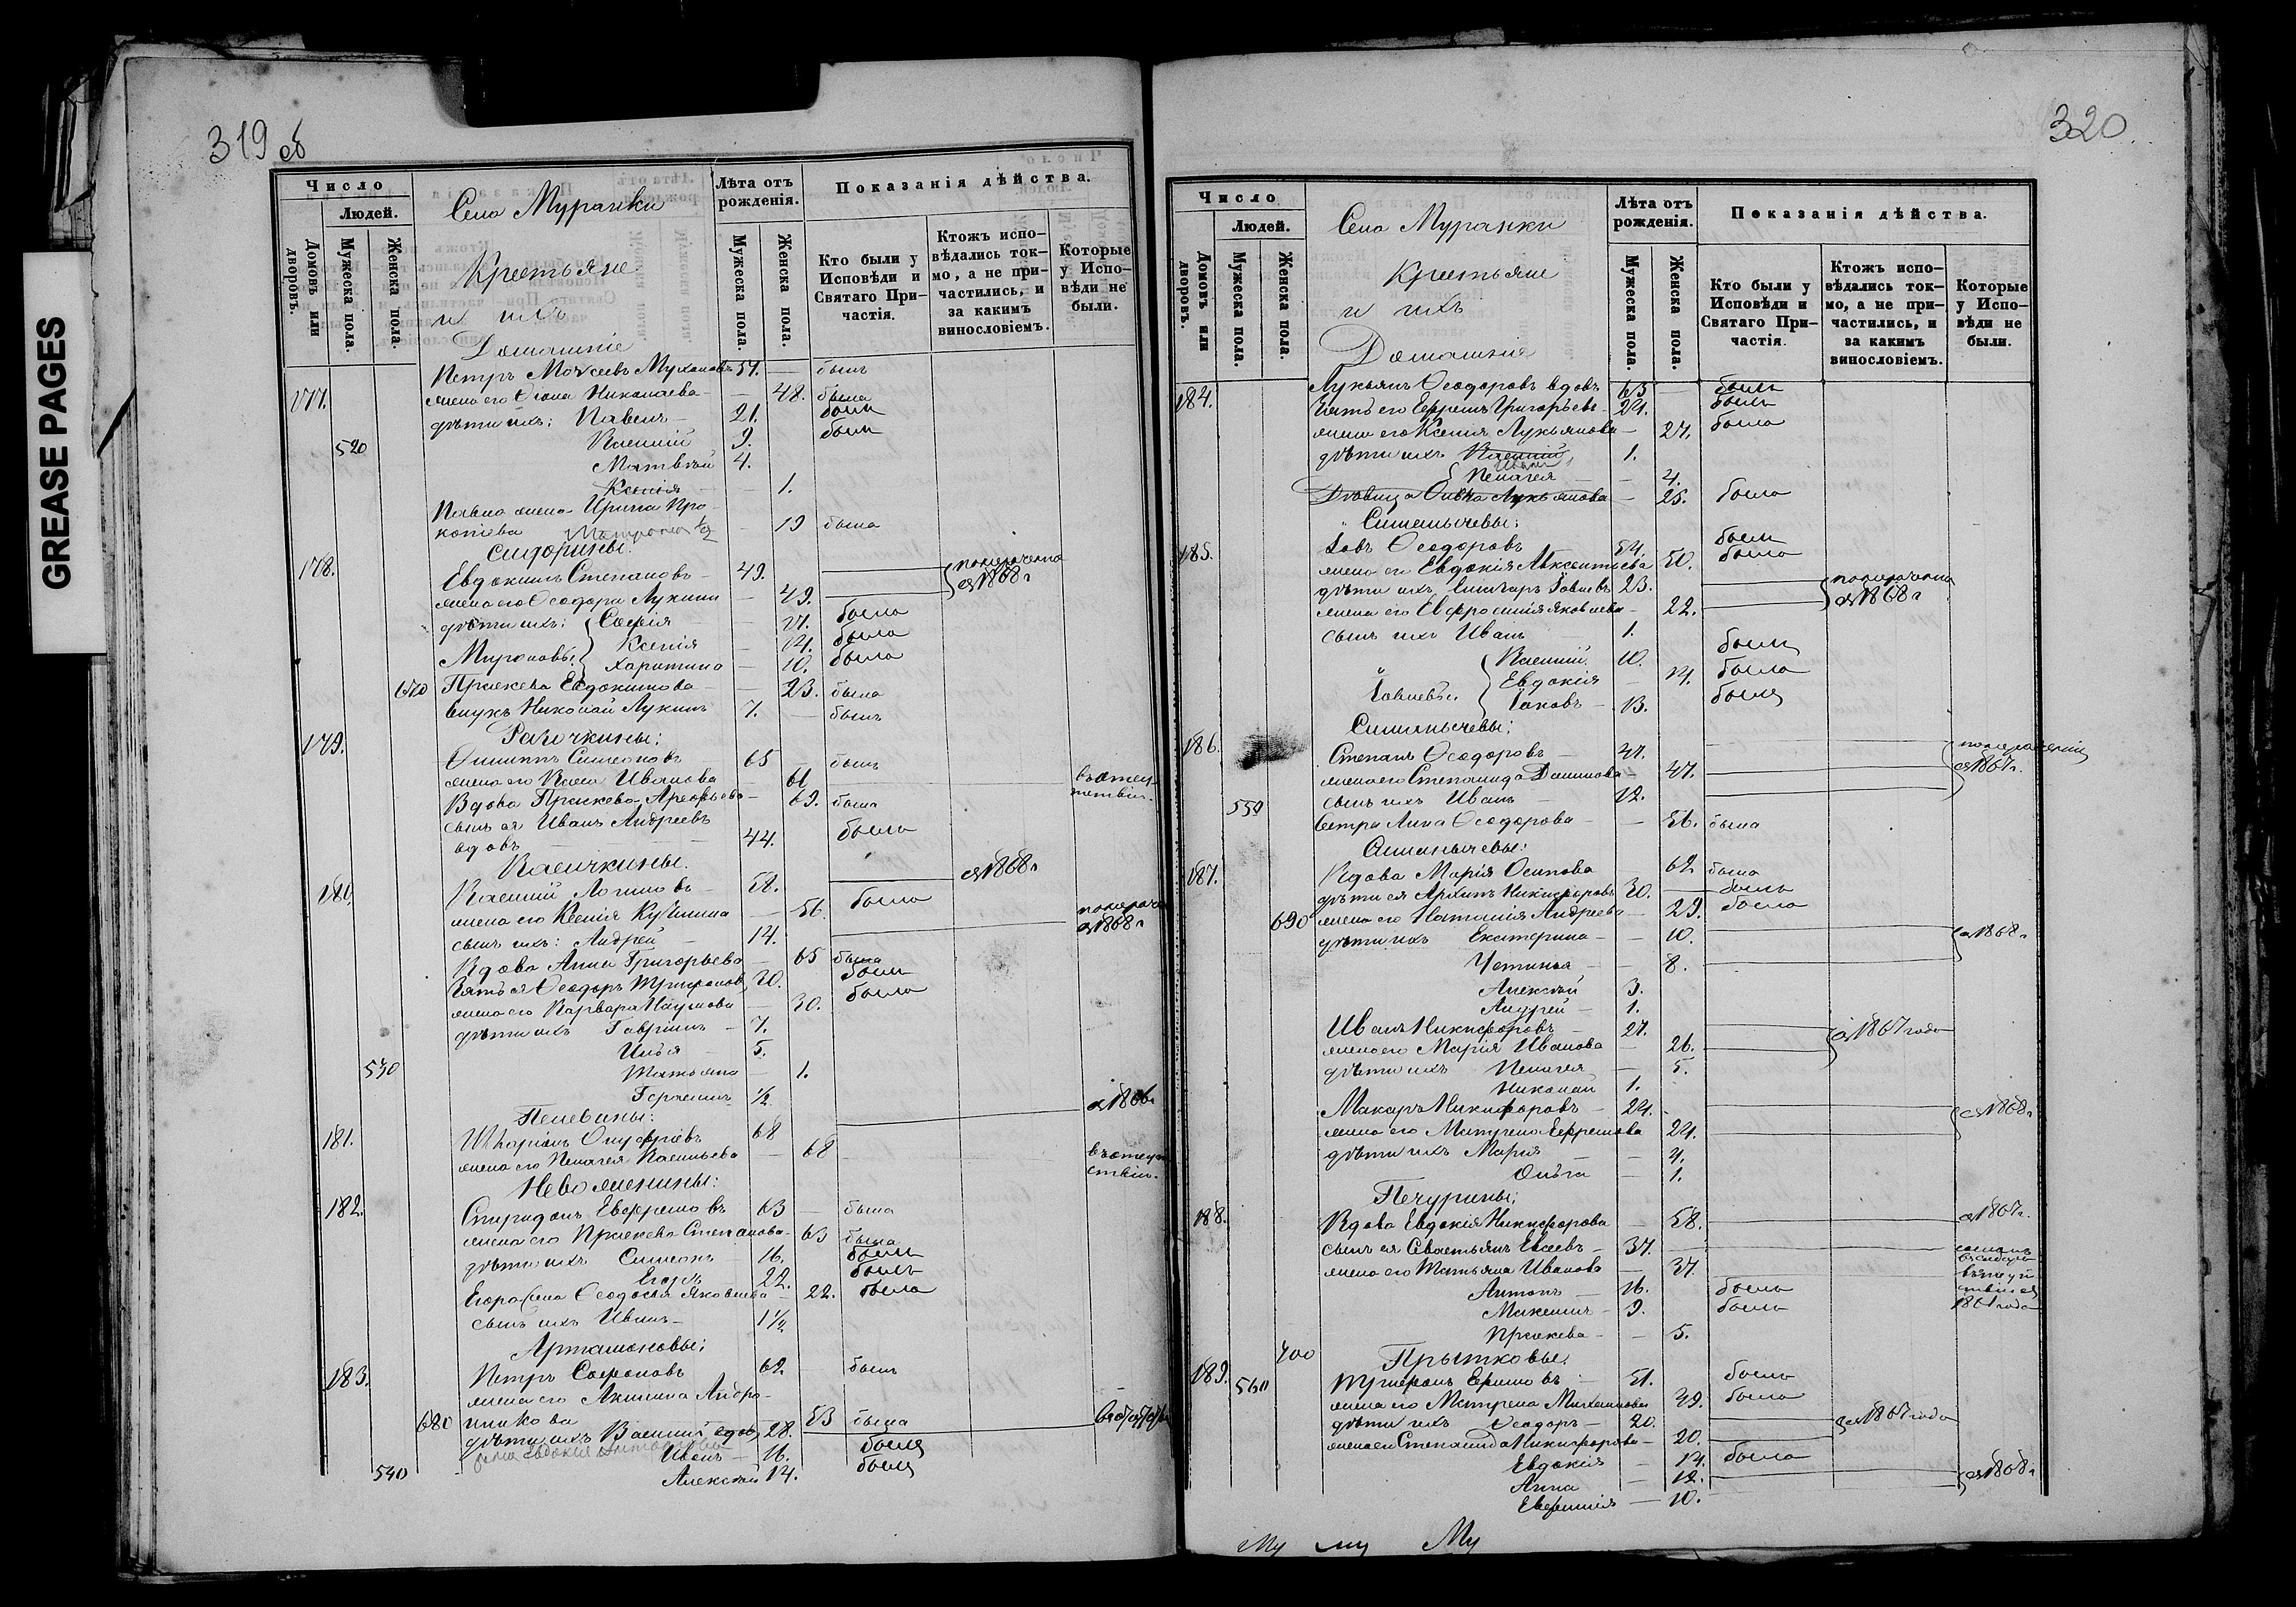 GREASE PAGES
319 об
Число
Людей.
Домовъ или дворовъ.
Мужеска пола.
Женска пола.
Села Муранки
Крестьяне
и ихъ
Домашніе
Лѣта отъ рожденія.
Мужеска пола.
Женска пола.
Показанія дѣйства.
Кто были у Исповѣди и Святаго Причастія.
Ктожъ исповѣдались токмо, а не причастились, и за какимъ винословіемъ.
Которые у Исповѣди не были.
Петръ Моѵсеевъ 57. — былъ
177. жена его Николаева — 48. была
дѣти ихъ: Павелъ — 21. былъ
520 Василій 9. былъ
Матвѣй 4.
Ксенія — 1.
Павла жена Ирина Про-
копіева — 19 была
Матрона 1/2
Сидорины:
178. Евдокимъ Степановъ — 49.
жена его Ѳеодора Лукина — 49. съ 1868 г
дѣти ихъ: Софія — 17. была
Ксенія — 14. была
Мироновы: Харитина — 10. была
670 Праскева Евдокимова — 23. была
внукъ Николай Лукинъ 7. — былъ
179.
Филиппъ Симеоновъ 65 былъ
жена его Иванова 61
Вдова Праскева — 69. была
сынъ ея Иванъ Андреевъ
вдовъ 44. былъ
Васичкины.
180. Василій Логиновъ — 58. съ 1868 г
жена его Ксенія — 56. была
сынъ ихъ: Андрей — 14. съ 1868 г
Вдова Анна Григорьева — 65 была
Зять ея Ѳеодоръ Трифоновъ 30. былъ
жена его Варвара Наумова — 30. была
дѣти ихъ Гавріилъ — 7.
Илья — 5.
530 Татьяна — 1.
Германъ 1/2
Пелевины:
181. Иларіонъ Онуфріевъ 68
жена его Пелагея Васильева — 68
182. Спиридонъ Ефремовъ 63 — была
жена его Праскева Степанова — 63 была
дѣти ихъ Симеонъ — 16. былъ
Егоръ — 22. былъ
Егора жена Ѳеодосья Яковлева — 22. была
сынъ ихъ Иванъ — 1 1/2
Артамоновы:
183. Петръ Софоновъ 62. былъ
жена его Акилина Андро-
680 никова 53 была
дѣти ихъ Василій вдов. 28.
жена Евдокія Антонова
Иванъ — 16. былъ
540 Алексѣй 14. былъ
320
Число
Людей.
Домовъ или дворовъ.
Мужеска пола.
Женска пола.
Села Муранки
Крестьяне
и ихъ
Домашнія
Лѣта отъ рожденія.
Мужеска пола.
Женска пола.
Показанія дѣйства.
Кто были у Исповѣди и Святаго Причастія.
Ктожъ исповѣдались токмо, а не причастились, и за какимъ винословіемъ.
Которые у Исповѣди не были.
184. Лукьянъ Ѳеодоровъ вдовъ 63 былъ
Зять его Ефремъ Григорьевъ — 24. былъ
жена его Ксенія Лукьянова — 27. была
дѣти ихъ Василій 1.
Иванъ
Пелагея — 4.
Дѣвица Лукьянова — 25. была
185. Іовъ Ѳеодоровъ 54. былъ
жена его Евдокія Авксентьева 50. была
дѣти ихъ Іовлевъ 23. съ 1868 г
жена его Евфросинія Яковлева — 22.
сынъ ихъ Иванъ 1.
Василій. 10. былъ
Евдокія — 14. была
Іовлевы: Іаковъ — 13. былъ
186. Степанъ Ѳеодоровъ — 47. съ 1867 г.
жена его Степанида Данилова — 47.
550 сынъ ихъ Иванъ — 12.
Сестра Анна Ѳеодорова — 56. была
187. Вдова Марія Осипова 62 была
дѣти ея Архипъ Никифоровъ 30. — былъ
690 жена его Наталія Андреева — 29. была
дѣти ихъ Екатерина — 10. съ 1868 г
Устинья — 8.
Алексѣй 3.
Андрей — 1.
Иванъ Никифоровъ — 27. съ 1867 года
жена его Марія Иванова — 26.
дѣти ихъ Пелагея — 5.
Николай 1.
Макаръ Никифоровъ — 24. съ 1868 г
жена его Матрена Ефремова 24.
дѣти ихъ Марія — 4.
Ольга — 1.
Печурины:
188. Вдова Евдокія Никифорова — 58. съ 1867 г.
сынъ ея Севастьянъ Евсеевъ — 37.
жена его Татьяна Иванова — 37
Антонъ — 16. былъ
Максимъ — 9. былъ
1861 года
Праскева — 5.
700 Прытковы:
189. 560 Трифонъ Ефимовъ — 51. былъ
жена его Матрена Михайлова 49. была
дѣти ихъ Ѳеодоръ — 20. съ 1867 года
жена его Степанида Никифорова — 20.
Евдокія — 14. была
Анна — 12. съ 1868 г
Евфимія — 10.
Му му Му